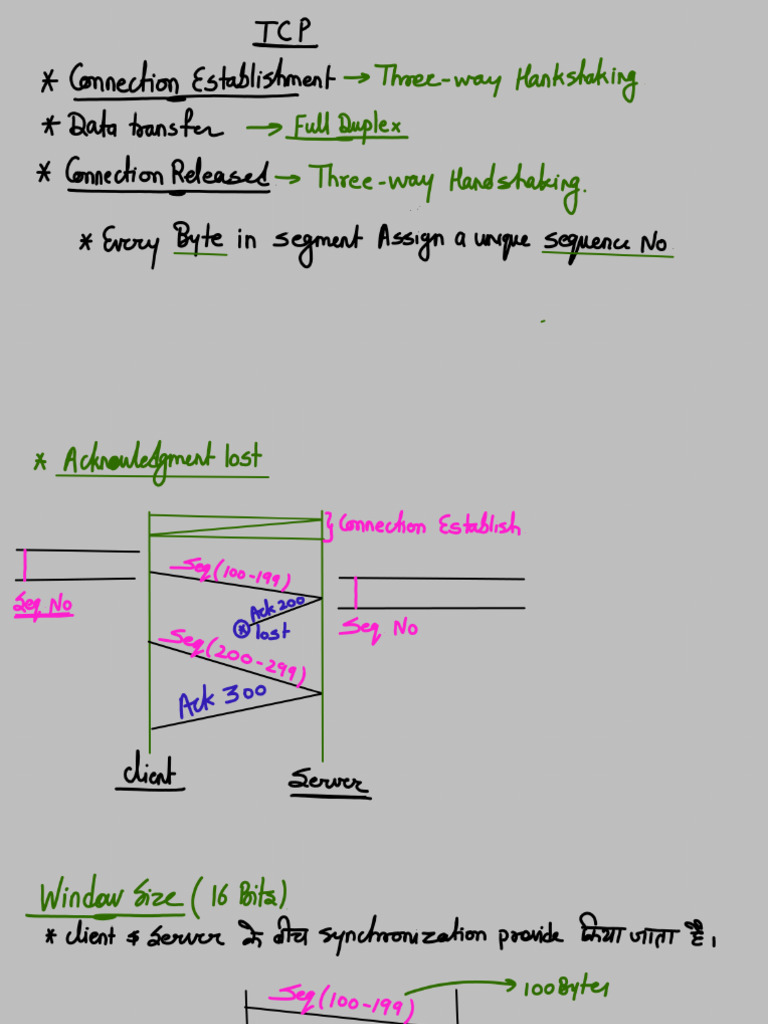 TCP
* Connection Establishment → Three-way Hankshaking
* Data transfer → Full Duplex
* Connection Released → Three-way Handshaking.
* Every Byte in segment Assign a unique sequence No
* Acknowledgment lost
} Connection Establish
Seq (100-199)
Seq No
Ack 200
lost
Seq No
Seq (200-299)
Ack 300
client
Server
Window Size (16 Bits)
* client & Server के बीच synchronization provide किया जाता है।
Seq (100-199) → 100Bytes